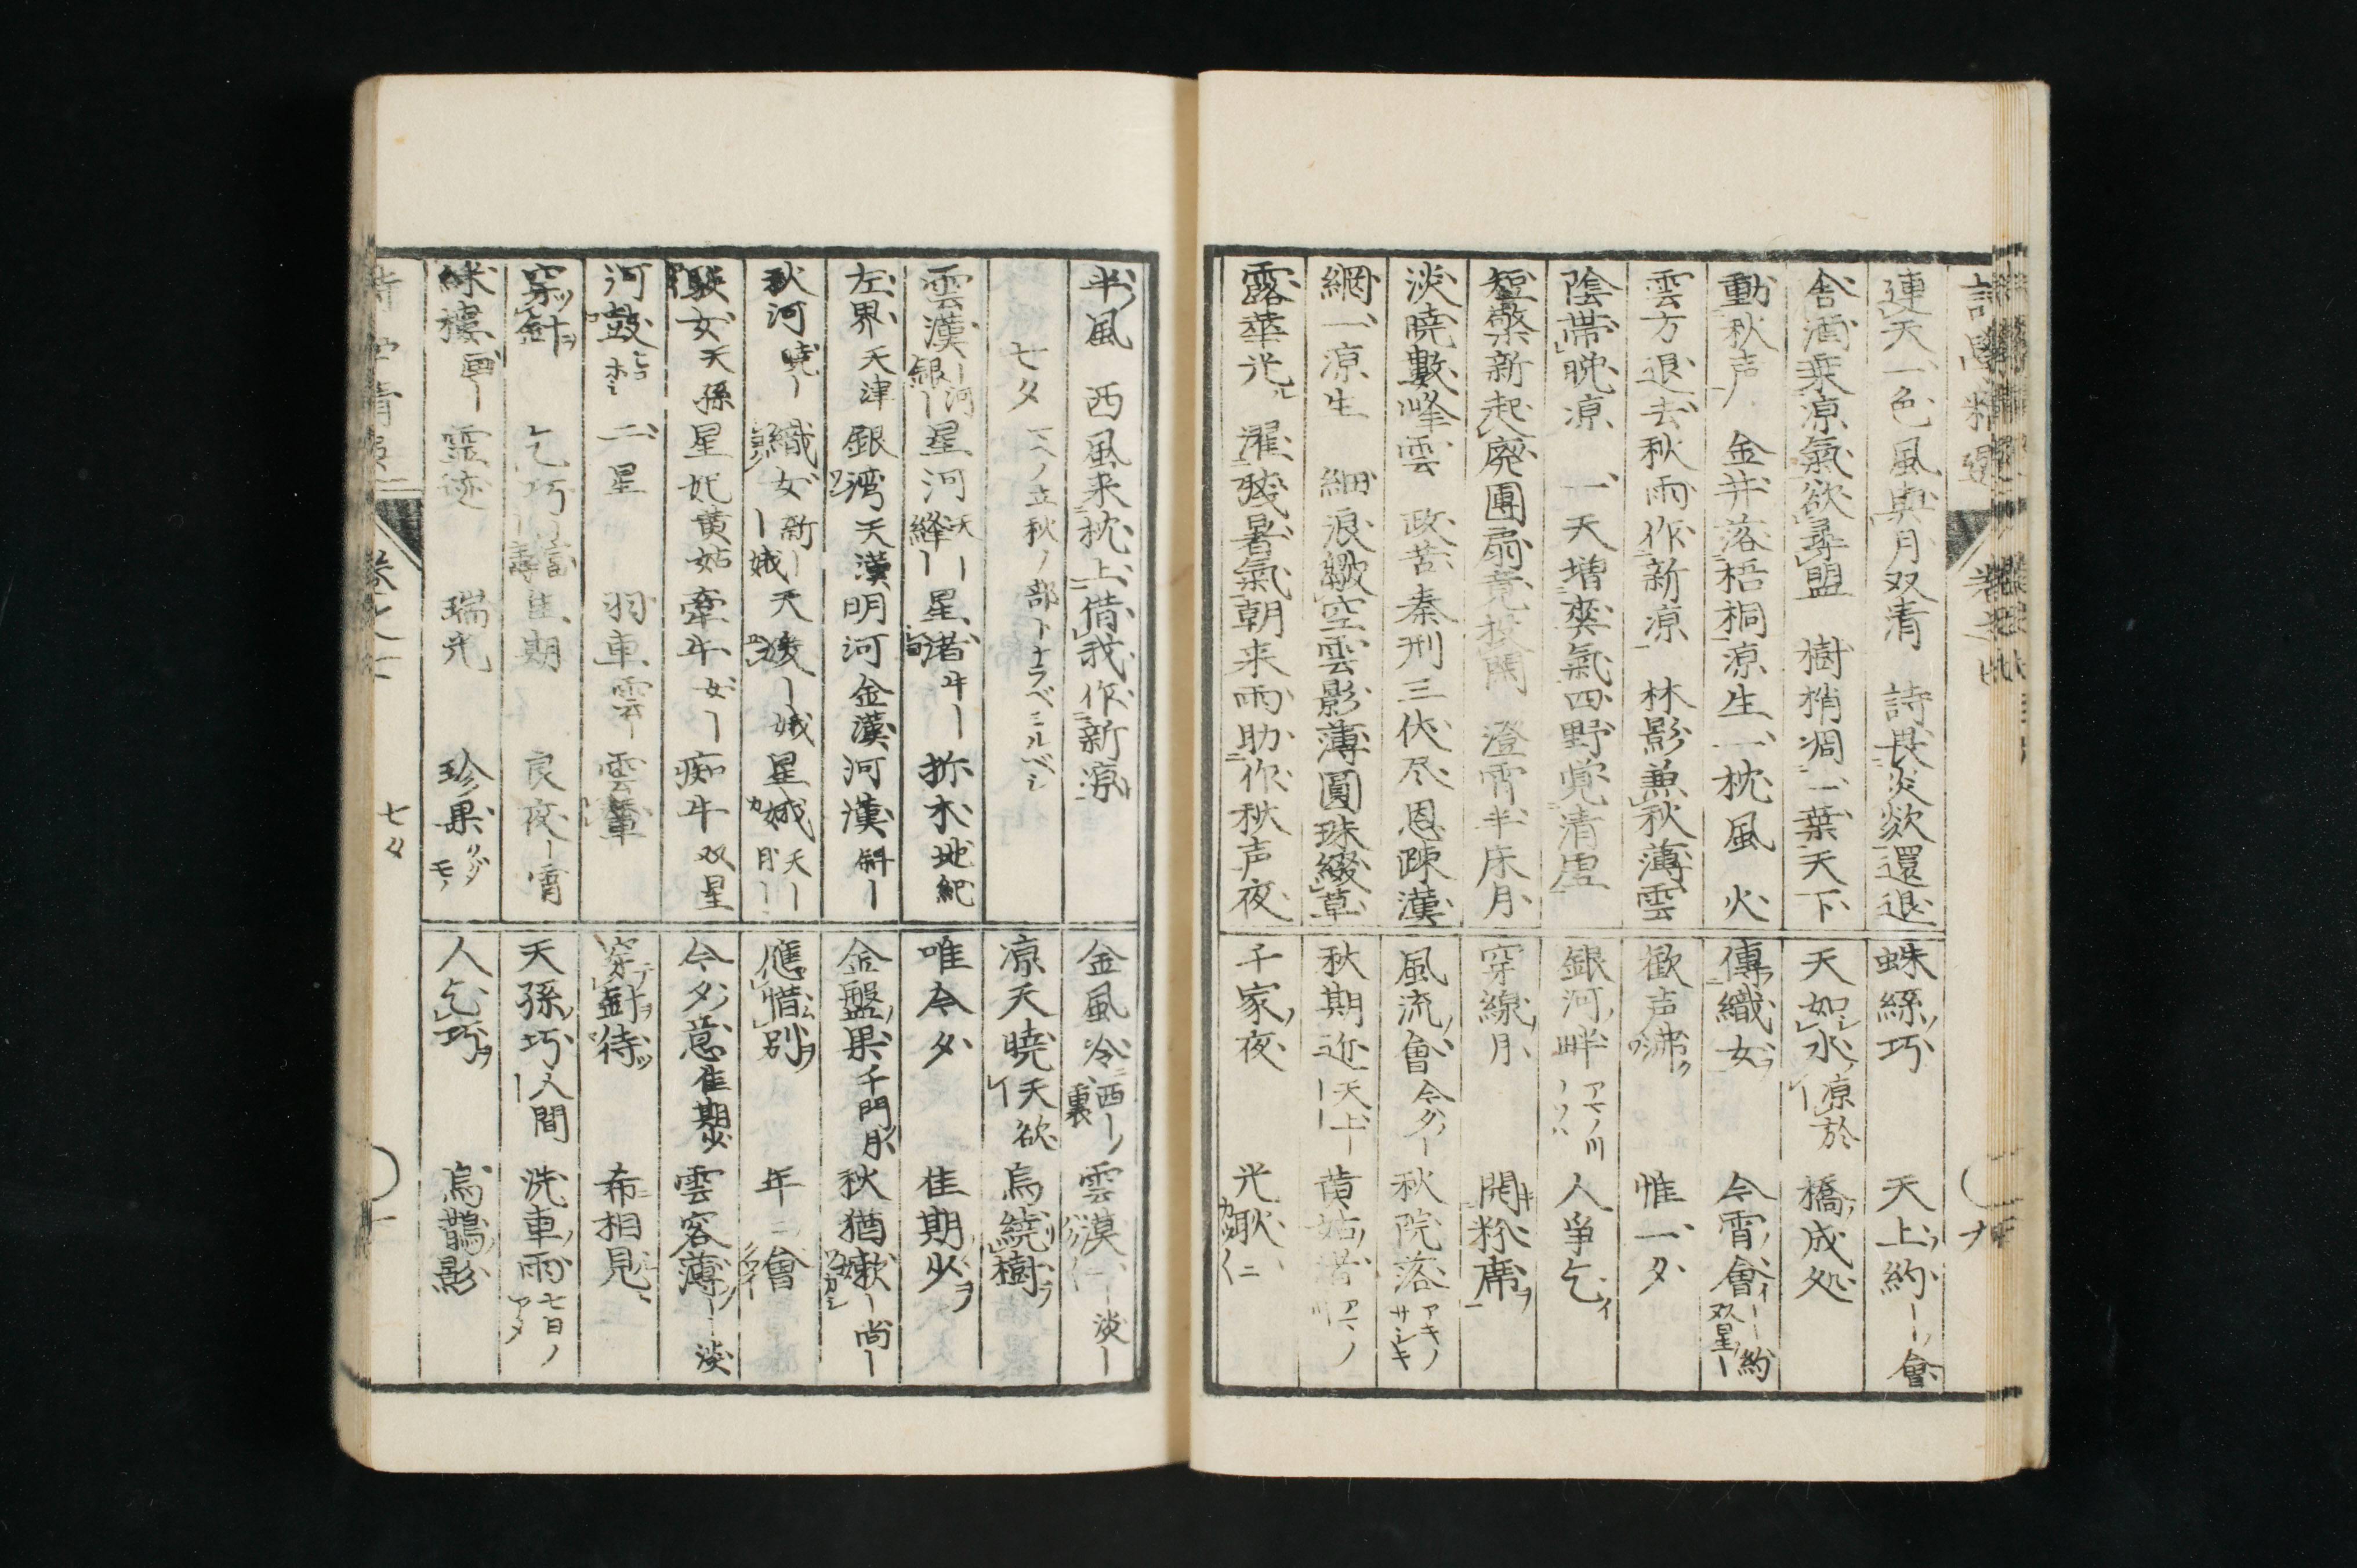 連天一色風與月双清　詩畏炎歊還退
舎酒乗凉氣欲尋盟　樹梢凋一葉天下
動秋声　金井落梧桐凉生一枕風　火
雲方退去秋雨作新凉　林影兼秋薄雲
陰帯晩凉　一天増爽氣四野覚清虚
短檠新起廃團扇竟投閑　澄霄半床月
淡暁數峰雲　政苦秦刑三伏尽恩疎漢
網一凉生　細浪皺空雲影薄圓珠綴草
露華光　濯残暑氣朝来雨助作秋声夜
蛛絲巧　天上約ー會
天如水　凉於　橋成処
傳織女　今霄會ー約双星ー
歓声沸　惟一夕
銀河畔アマノ川ノソハ　人爭乞
穿線月　開粉席
風流會今夕ー　秋院落アキノサシキ
秋期近天上ー　黄姑アマノ
千家夜　光耿
半風　西風来枕上借我作新凉
七夕　一へノ立秋ノ部トナラベミルベシ
雲漢ー河銀ー　星河天ー絳ー　星渚　析木　地紀
左界　天津　銀湾　天漢　明河　金漢　河漢　斜ー
秋河暁ー　織女新ー　ー娥　天　ー娥　星娥天ー月ー
女　天孫　星妃　黄姑　牽牛　女ー　痴牛　双星
河鼓　二星　羽車雲ー　雲軿
穿針　乞巧　佳期　良夜ー宵
綵樓画ー　霊迹　瑞光　珍果クダモノ
金風冷西ー　雲漠　淡ー
凉天暁　天欲　烏繞樹
唯今夕　佳期少
金盤果　千門月　秋猶嫩ー尚ー
應惜別　年　會
今夕意　佳期少　雲容薄ー淡
穿針待　希相見
天孫巧人間　洗車雨七日ノアメ
人乞巧　烏鵲影
卷之七
七夕